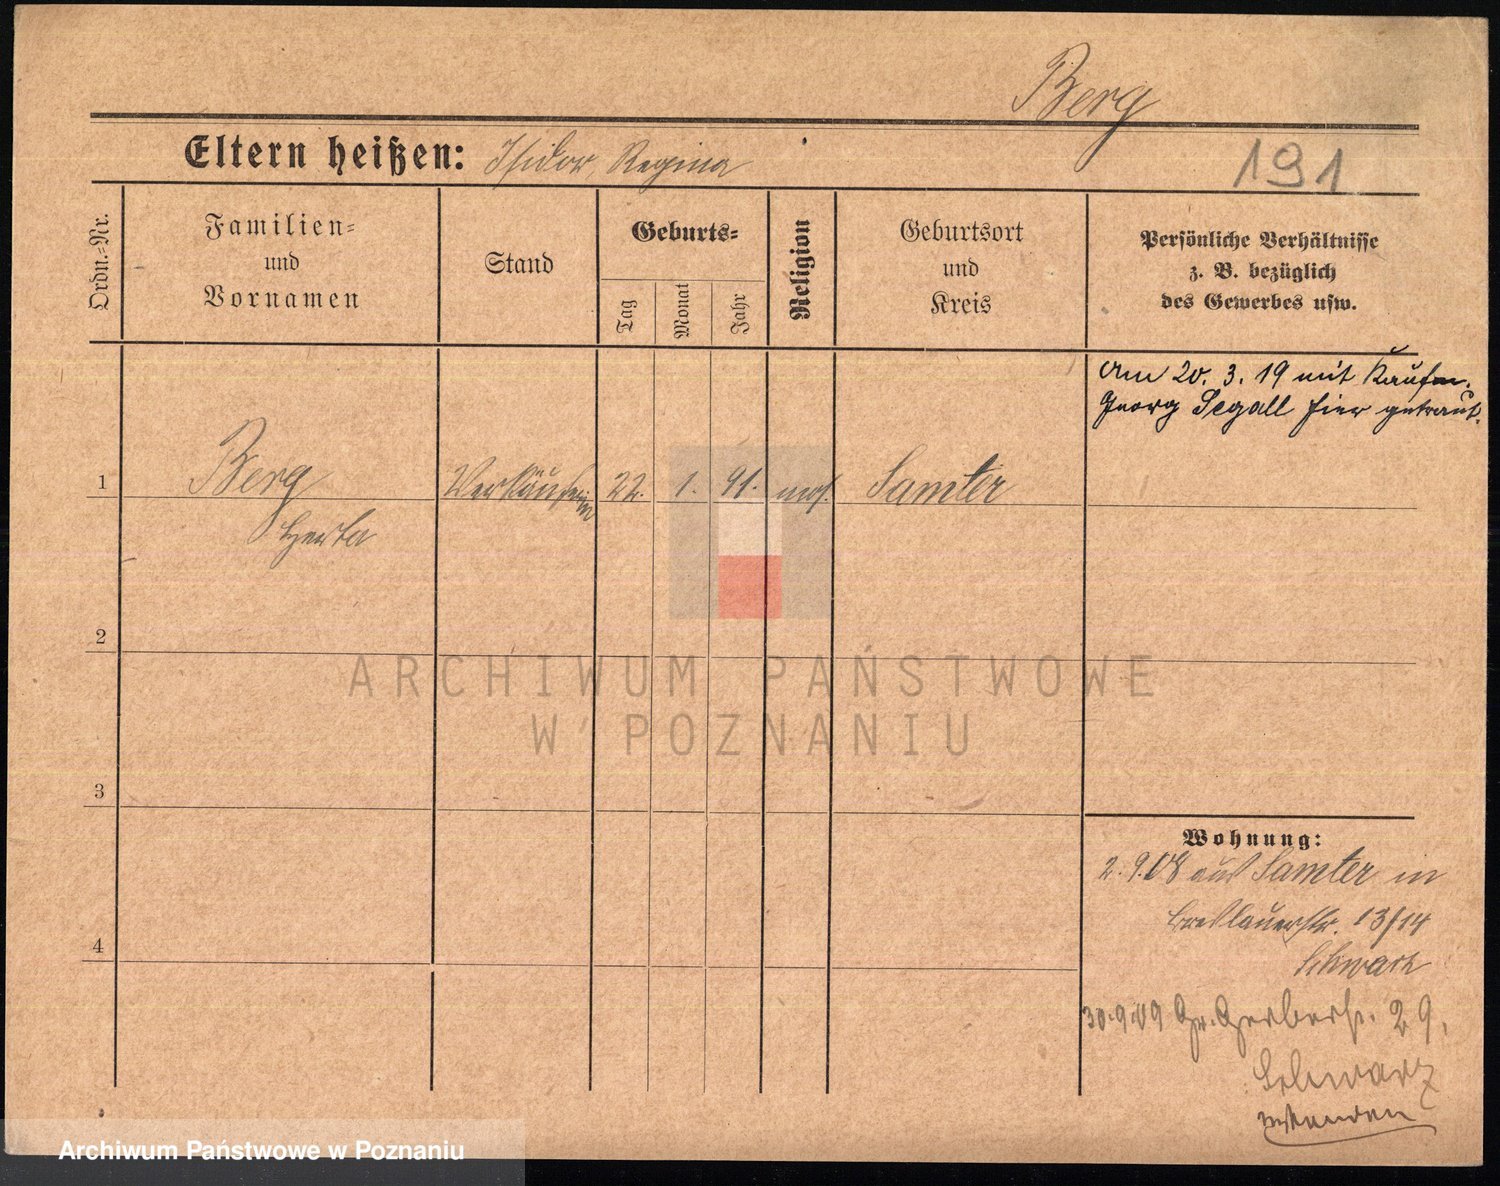 Berg
Eltern heißen: Isidor, Regina
191
Ordn.-Nr.
Familien-
und
Vornamen
Stand
Geburts-
Tag
Monat
Jahr
Religion
Geburtsort
und
Kreis
Persönliche Verhältnisse
z. B. bezüglich
des Gewerbes usw.
Am 20. 3. 19 mit Kaufm.
Georg Segall hier getraut.
1
Berg
Herta
Verkäuferin
22.
1.
91.
mos.
Samter
2
3
4
Wohnung:
2. 9. 08 aus Samter in
Breslauerstr. 13/14
Schwarz
30.9.09 Gr. Gerberstr. 29.
Schwarz
wenden
ARCHIWUM PAŃSTWOWE
W POZNANIU
Archiwum Państwowe w Poznaniu